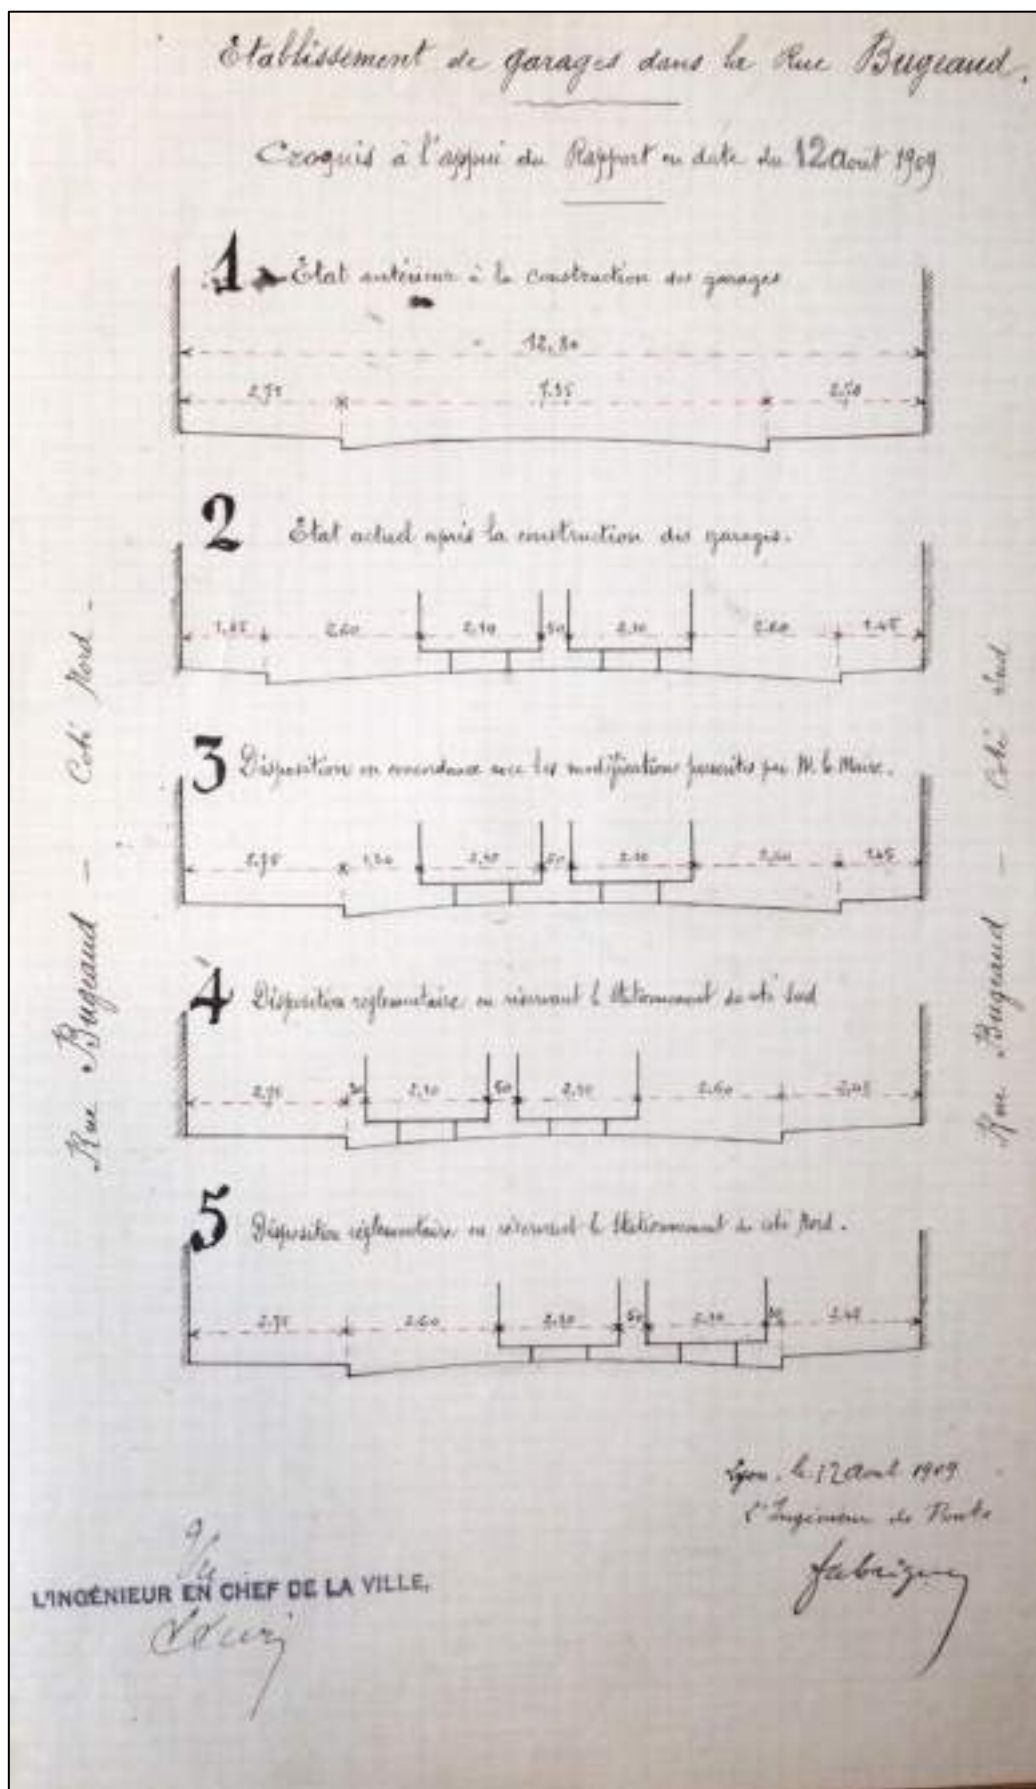 Etablissement de garages dans la Rue Bugeaud.
Croquis à l'appui du Rapport en date du 12 Aout 1909
1 Etat antérieur à la construction des garages
12,80
2,75 7.35 2,70
2 Etat actuel après la construction des garages.
1,45 2.60 2,10 50 2,10 2.60 1.45
3 Disposition en concordance avec les modifications prescrites par M. le Maire.
2,75 1,30 2,10 50 2.10 2,60 1,45
4 Disposition réglementaire en réservant le Stationnement du côté Sud
2,75 30 2,10 50 2,10 2,60 2,45
5 Disposition réglementaire en réservant le Stationnement du côté Nord.
2,75 2.60 2,10 50 2,10 30 2.45
Rue Bugeaud — Coté Nord -
Rue Bugeaud — Coté Sud
Lyon, le 12 Aout 1909
L'Ingénieur
Vu
L'INGÉNIEUR EN CHEF DE LA VILLE,